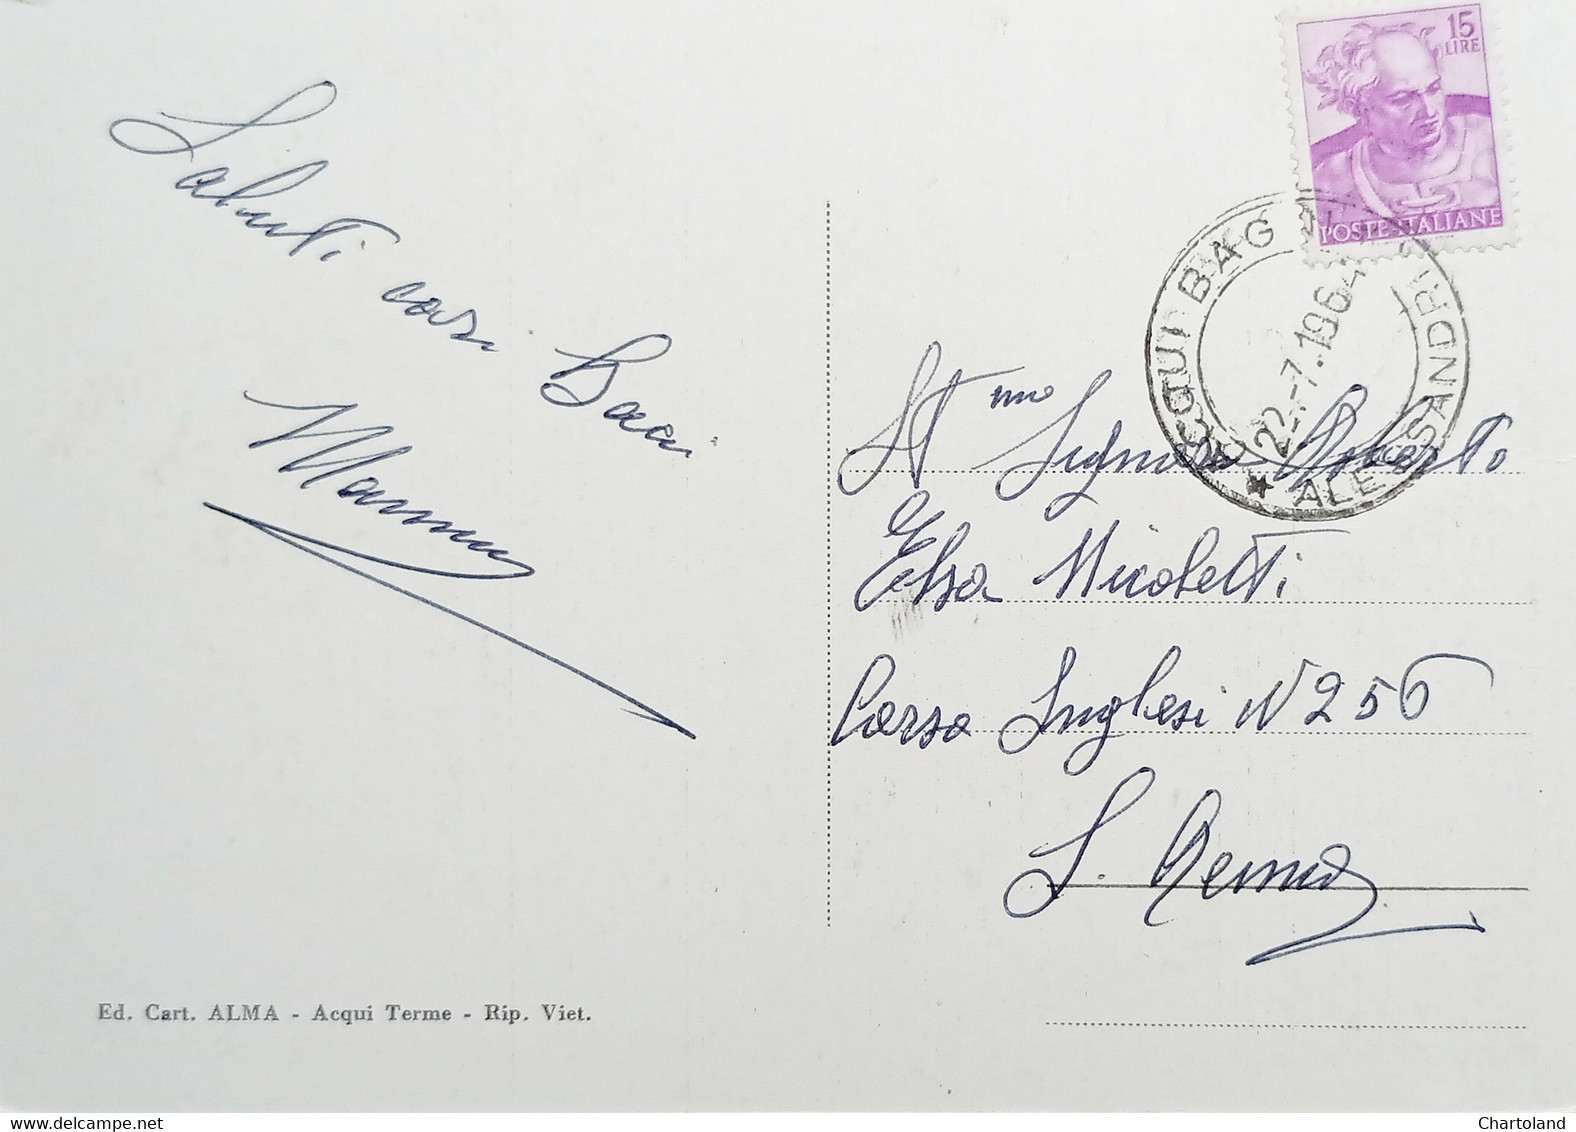 Saluti cari Baci
Mamma
15
LIRE
POSTE ITALIANE
ACQUI BAGNI
ALESSANDRIA
22.-7.1964
St.mo Signor Roberto
Elsa Nicoletti
Corso Inglesi N 256
S. Remo
Ed. Cart. ALMA - Acqui Terme - Rip. Viet.
delcampe.net
Chartoland